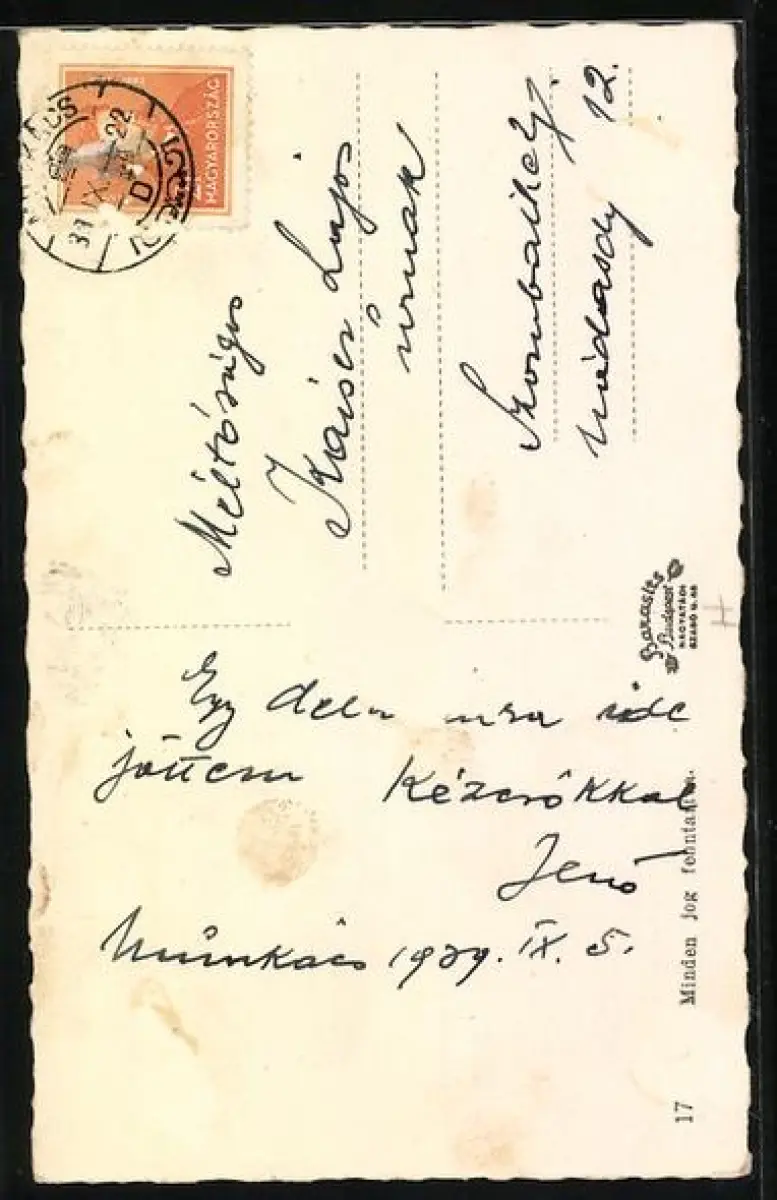 MAGYARORSZÁG
39 IX 22
D
Méltóságos
Kaiser Lajos
úrnak
Szombathely
Nádasdy 12.
Barasits
Budapest
NAGYATÁDI
SZABÓ U. 46
Egy délutánra ide
jöttem Kézcsókkal
Jenő
Munkács 1939. IX. 5.
Minden jog fenntartva.
17